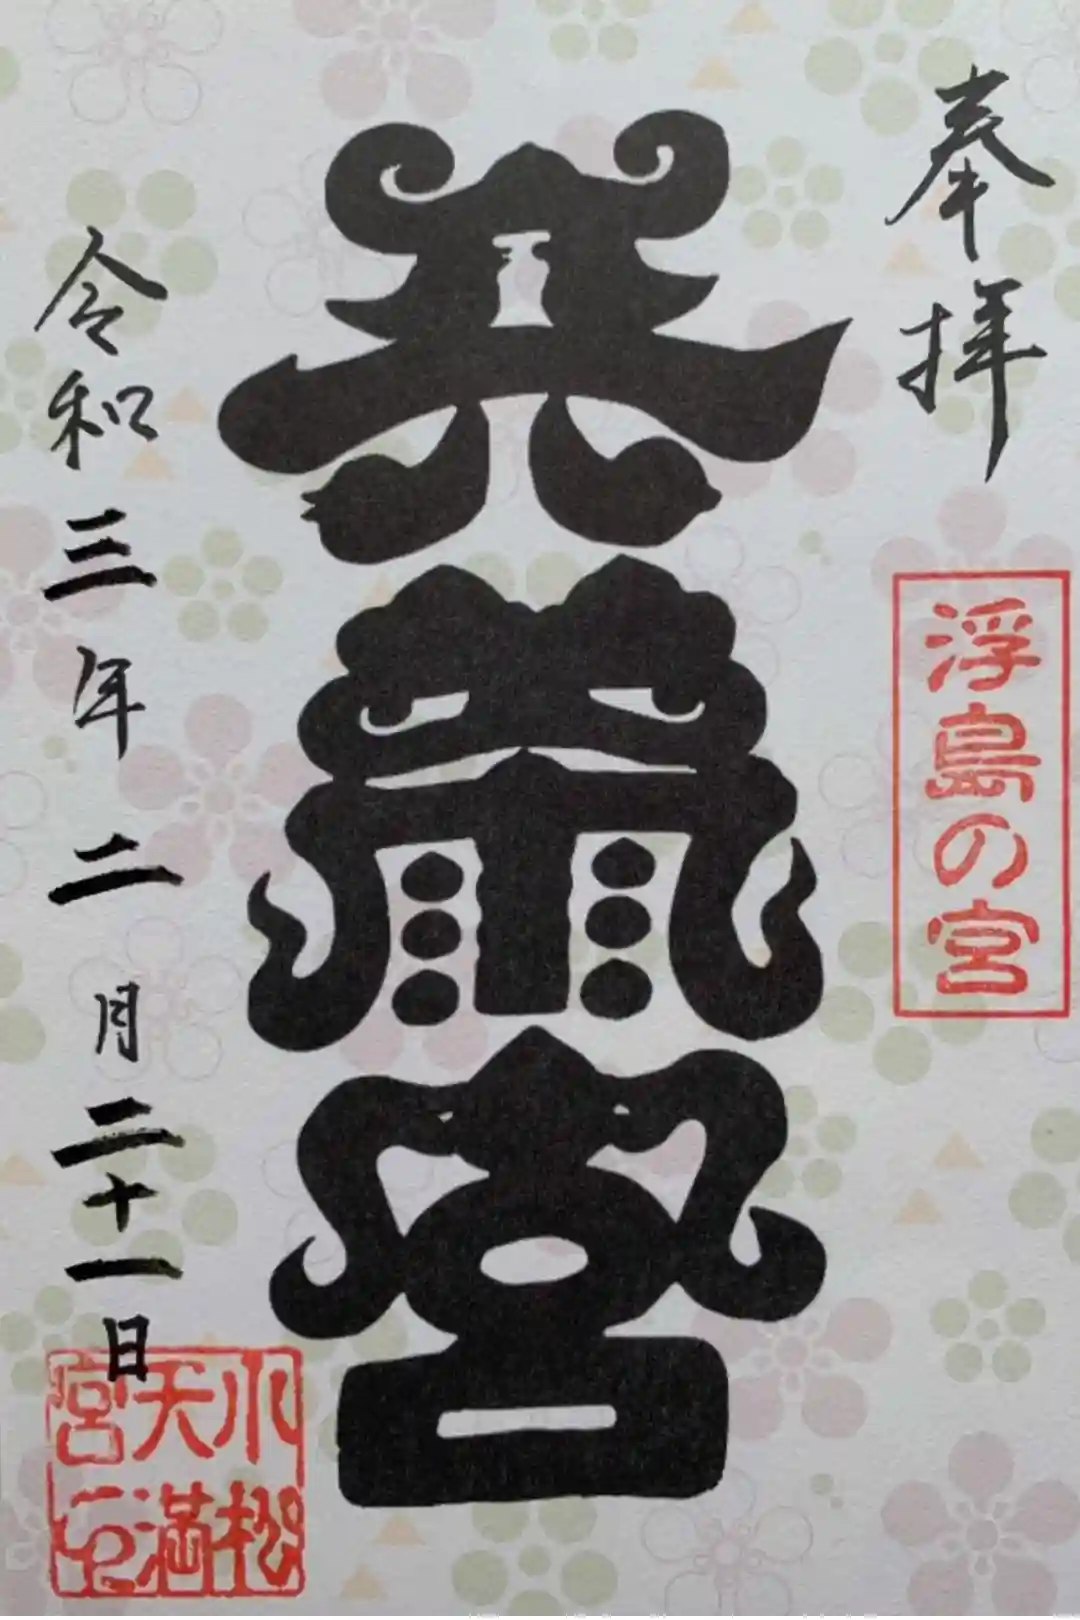 奉拝
浮島の宮
天満宮
令和三年二月二十一日
小松
天満
宮印